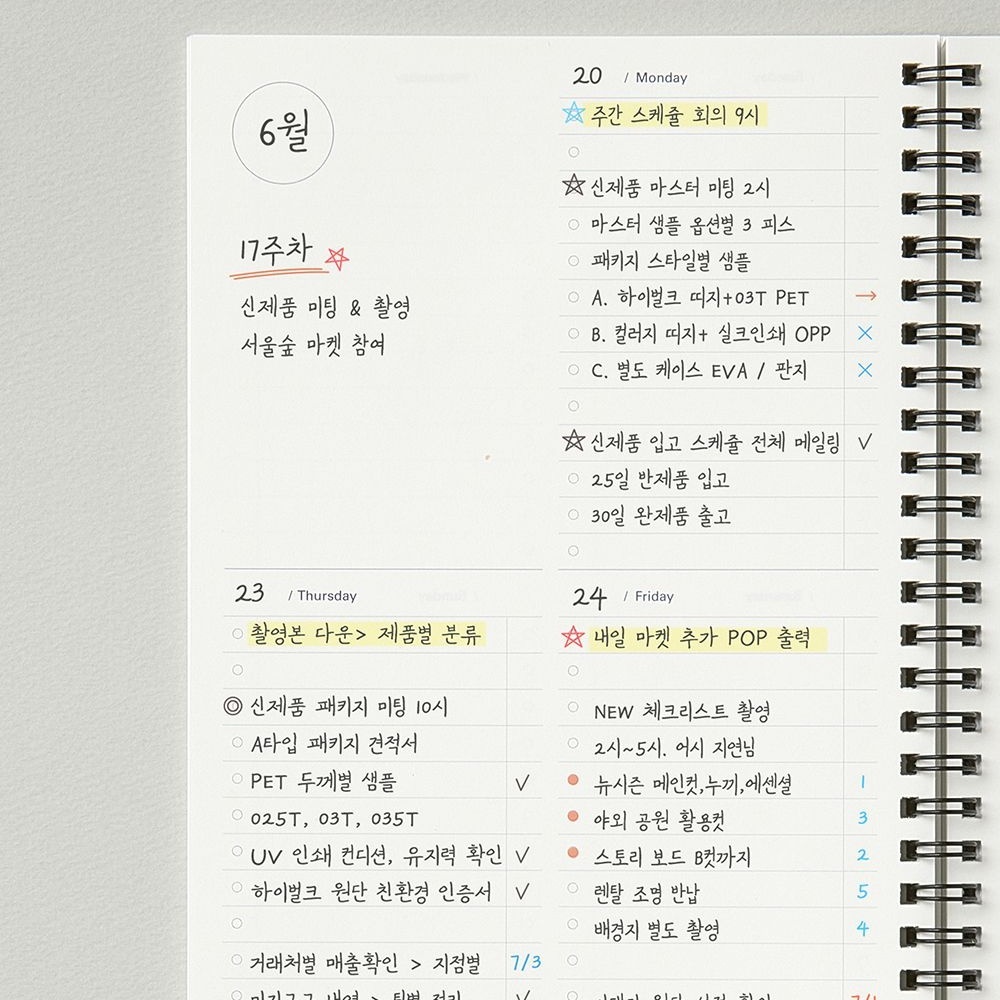 6월
17주차
신제품 미팅 & 촬영
서울숲 마켓 참여
20 / Monday
주간 스케쥴 회의 9시
신제품 마스터 미팅 2시
마스터 샘플 옵션별 3 피스
패키지 스타일별 샘플
A. 하이벌크 띠지+03T PET →
B. 컬러지 띠지+ 실크인쇄 OPP ×
C. 별도 케이스 EVA / 판지 ×
신제품 입고 스케쥴 전체 메일링 ✓
25일 반제품 입고
30일 완제품 출고
23 / Thursday
촬영본 다운> 제품별 분류
신제품 패키지 미팅 10시
A타입 패키지 견적서
PET 두께별 샘플 ✓
025T, 03T, 035T
UV 인쇄 컨디션, 유지력 확인 ✓
하이벌크 원단 친환경 인증서 ✓
거래처별 매출확인 > 지점별 7/3
24 / Friday
내일 마켓 추가 POP 출력
NEW 체크리스트 촬영
2시~5시. 어시 지연님
뉴시즌 메인컷,누끼,에센셜 1
야외 공원 활용컷 3
스토리 보드 B컷까지 2
렌탈 조명 반납 5
배경지 별도 촬영 4